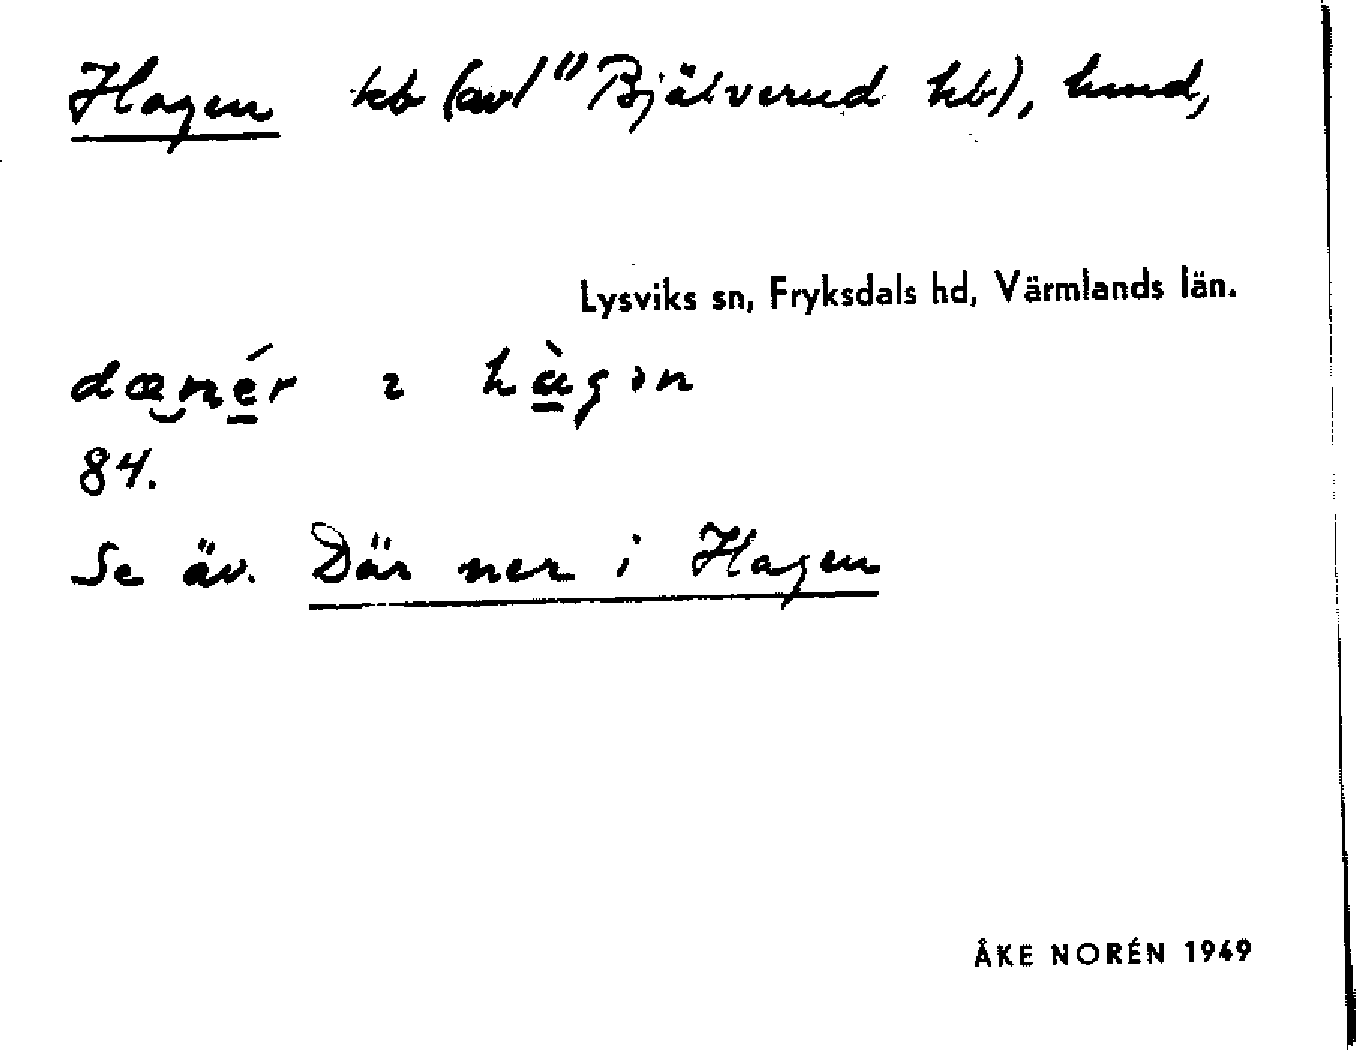 Hagen hb (av 1/1 Bjälverud hb), hmd,
Lysviks sn, Fryksdals hd, Värmlands län.
dænér ɪ hàgən
84.
Se äv. Där ner i Hagen
ÅKE NORÉN 1949